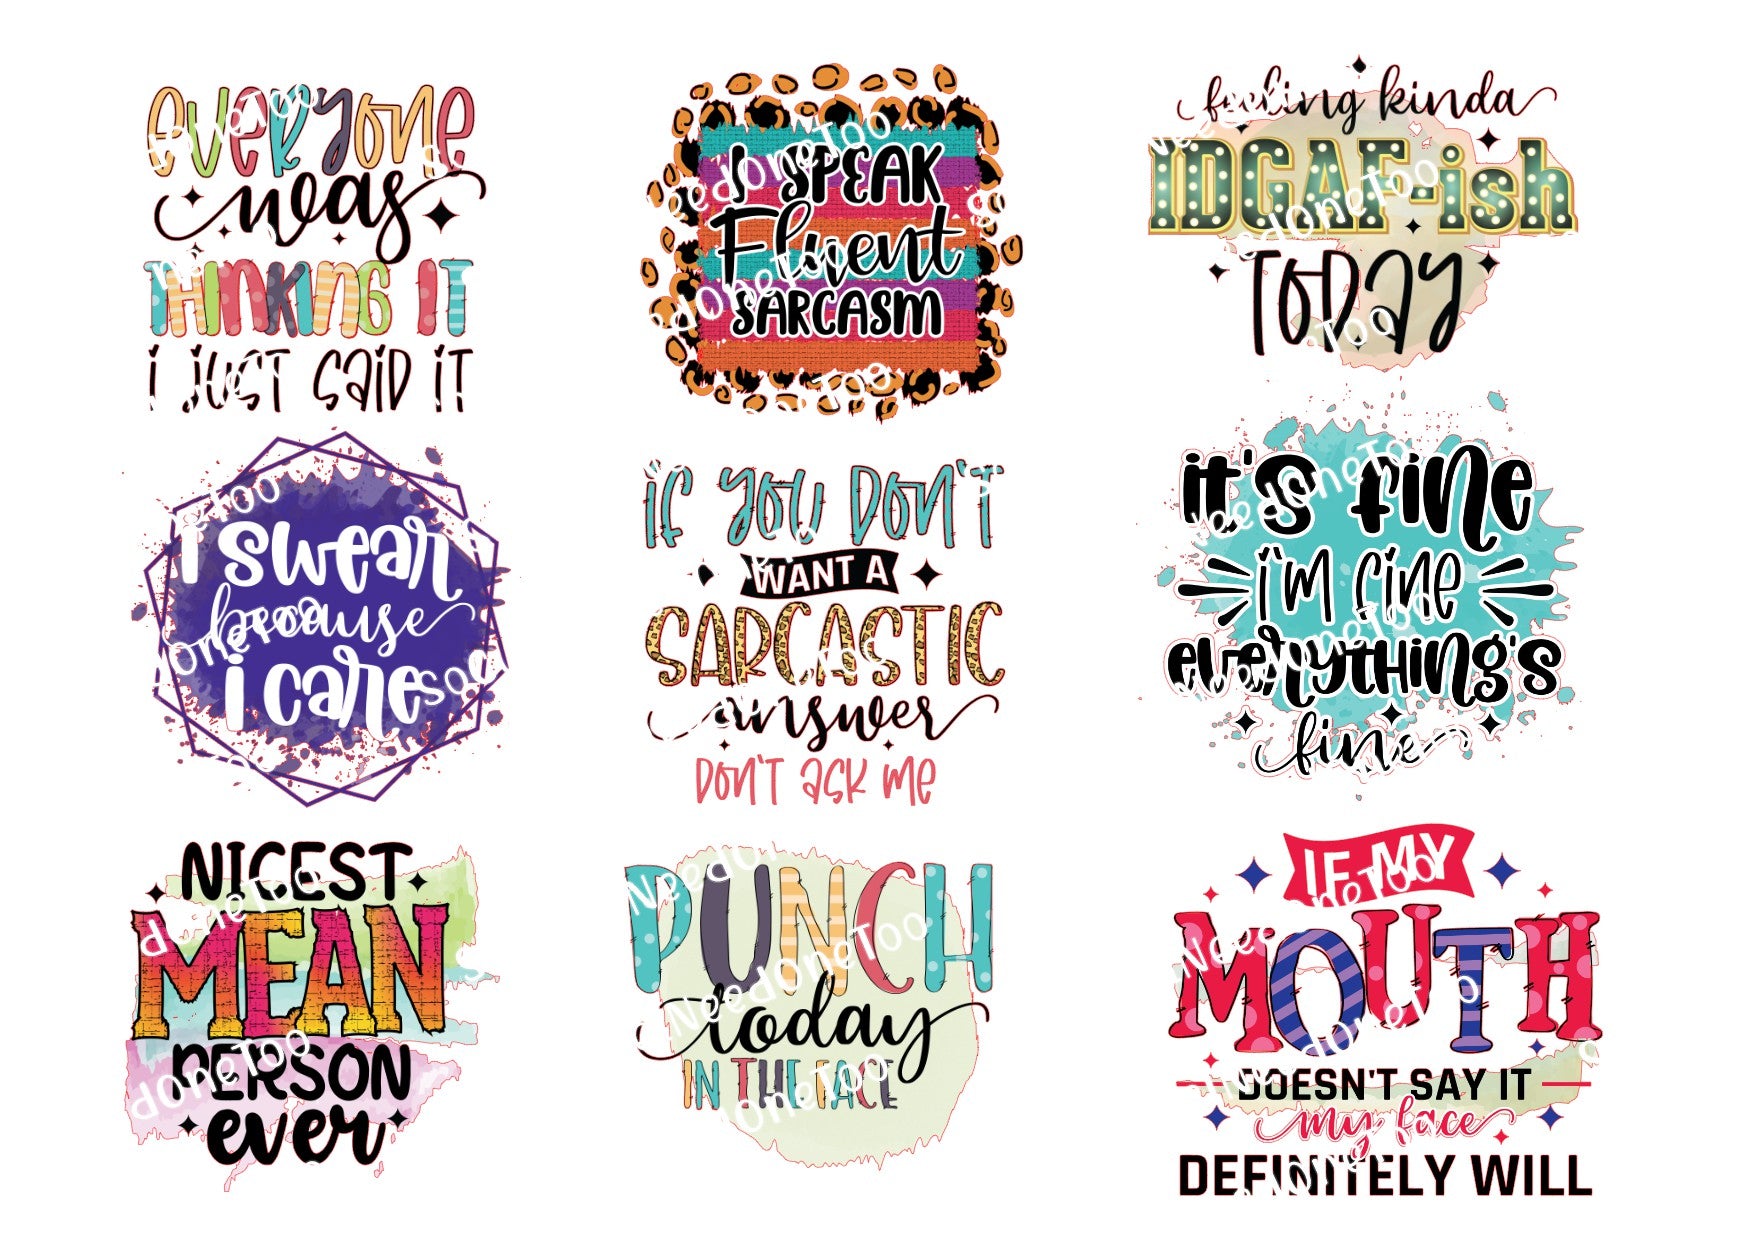 everyone
was
THINKING IT
i JUST SAID IT
I SPEAK
Fluent
SARCASM
feeling kinda
IDGAF-ish
TODAY
i swear
because
i care
if you DON'T
WANT A
SARCASTIC
answer
DON'T ASK ME
it's fine
i'm fine
everything's
fine
NICEST
MEAN
PERSON
ever
PUNCH
today
IN THE FACE
IF MY
MOUTH
DOESN'T SAY IT
my face
DEFINITELY WILL
NeedOneToo